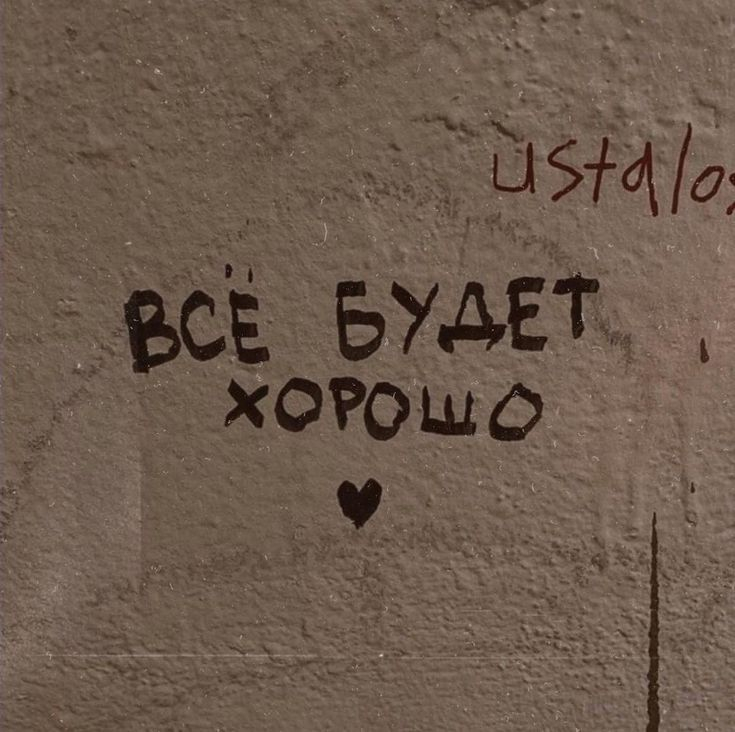 ustalos
ВСЁ БУДЕТ
ХОРОШО